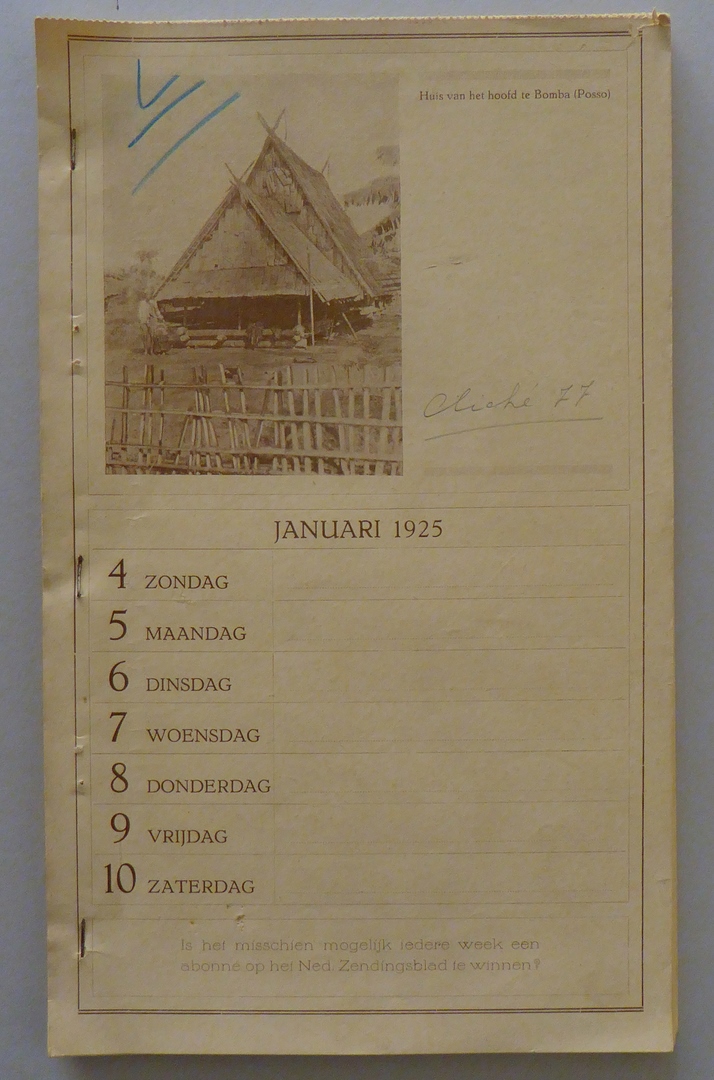 Huis van het hoofd te Bomba (Posso)
Cliché 77
JANUARI 1925
4 ZONDAG
5 MAANDAG
6 DINSDAG
7 WOENSDAG
8 DONDERDAG
9 VRIJDAG
10 ZATERDAG
Is het misschien mogelijk iedere week een
abonné op het Ned. Zendingsblad te winnen?